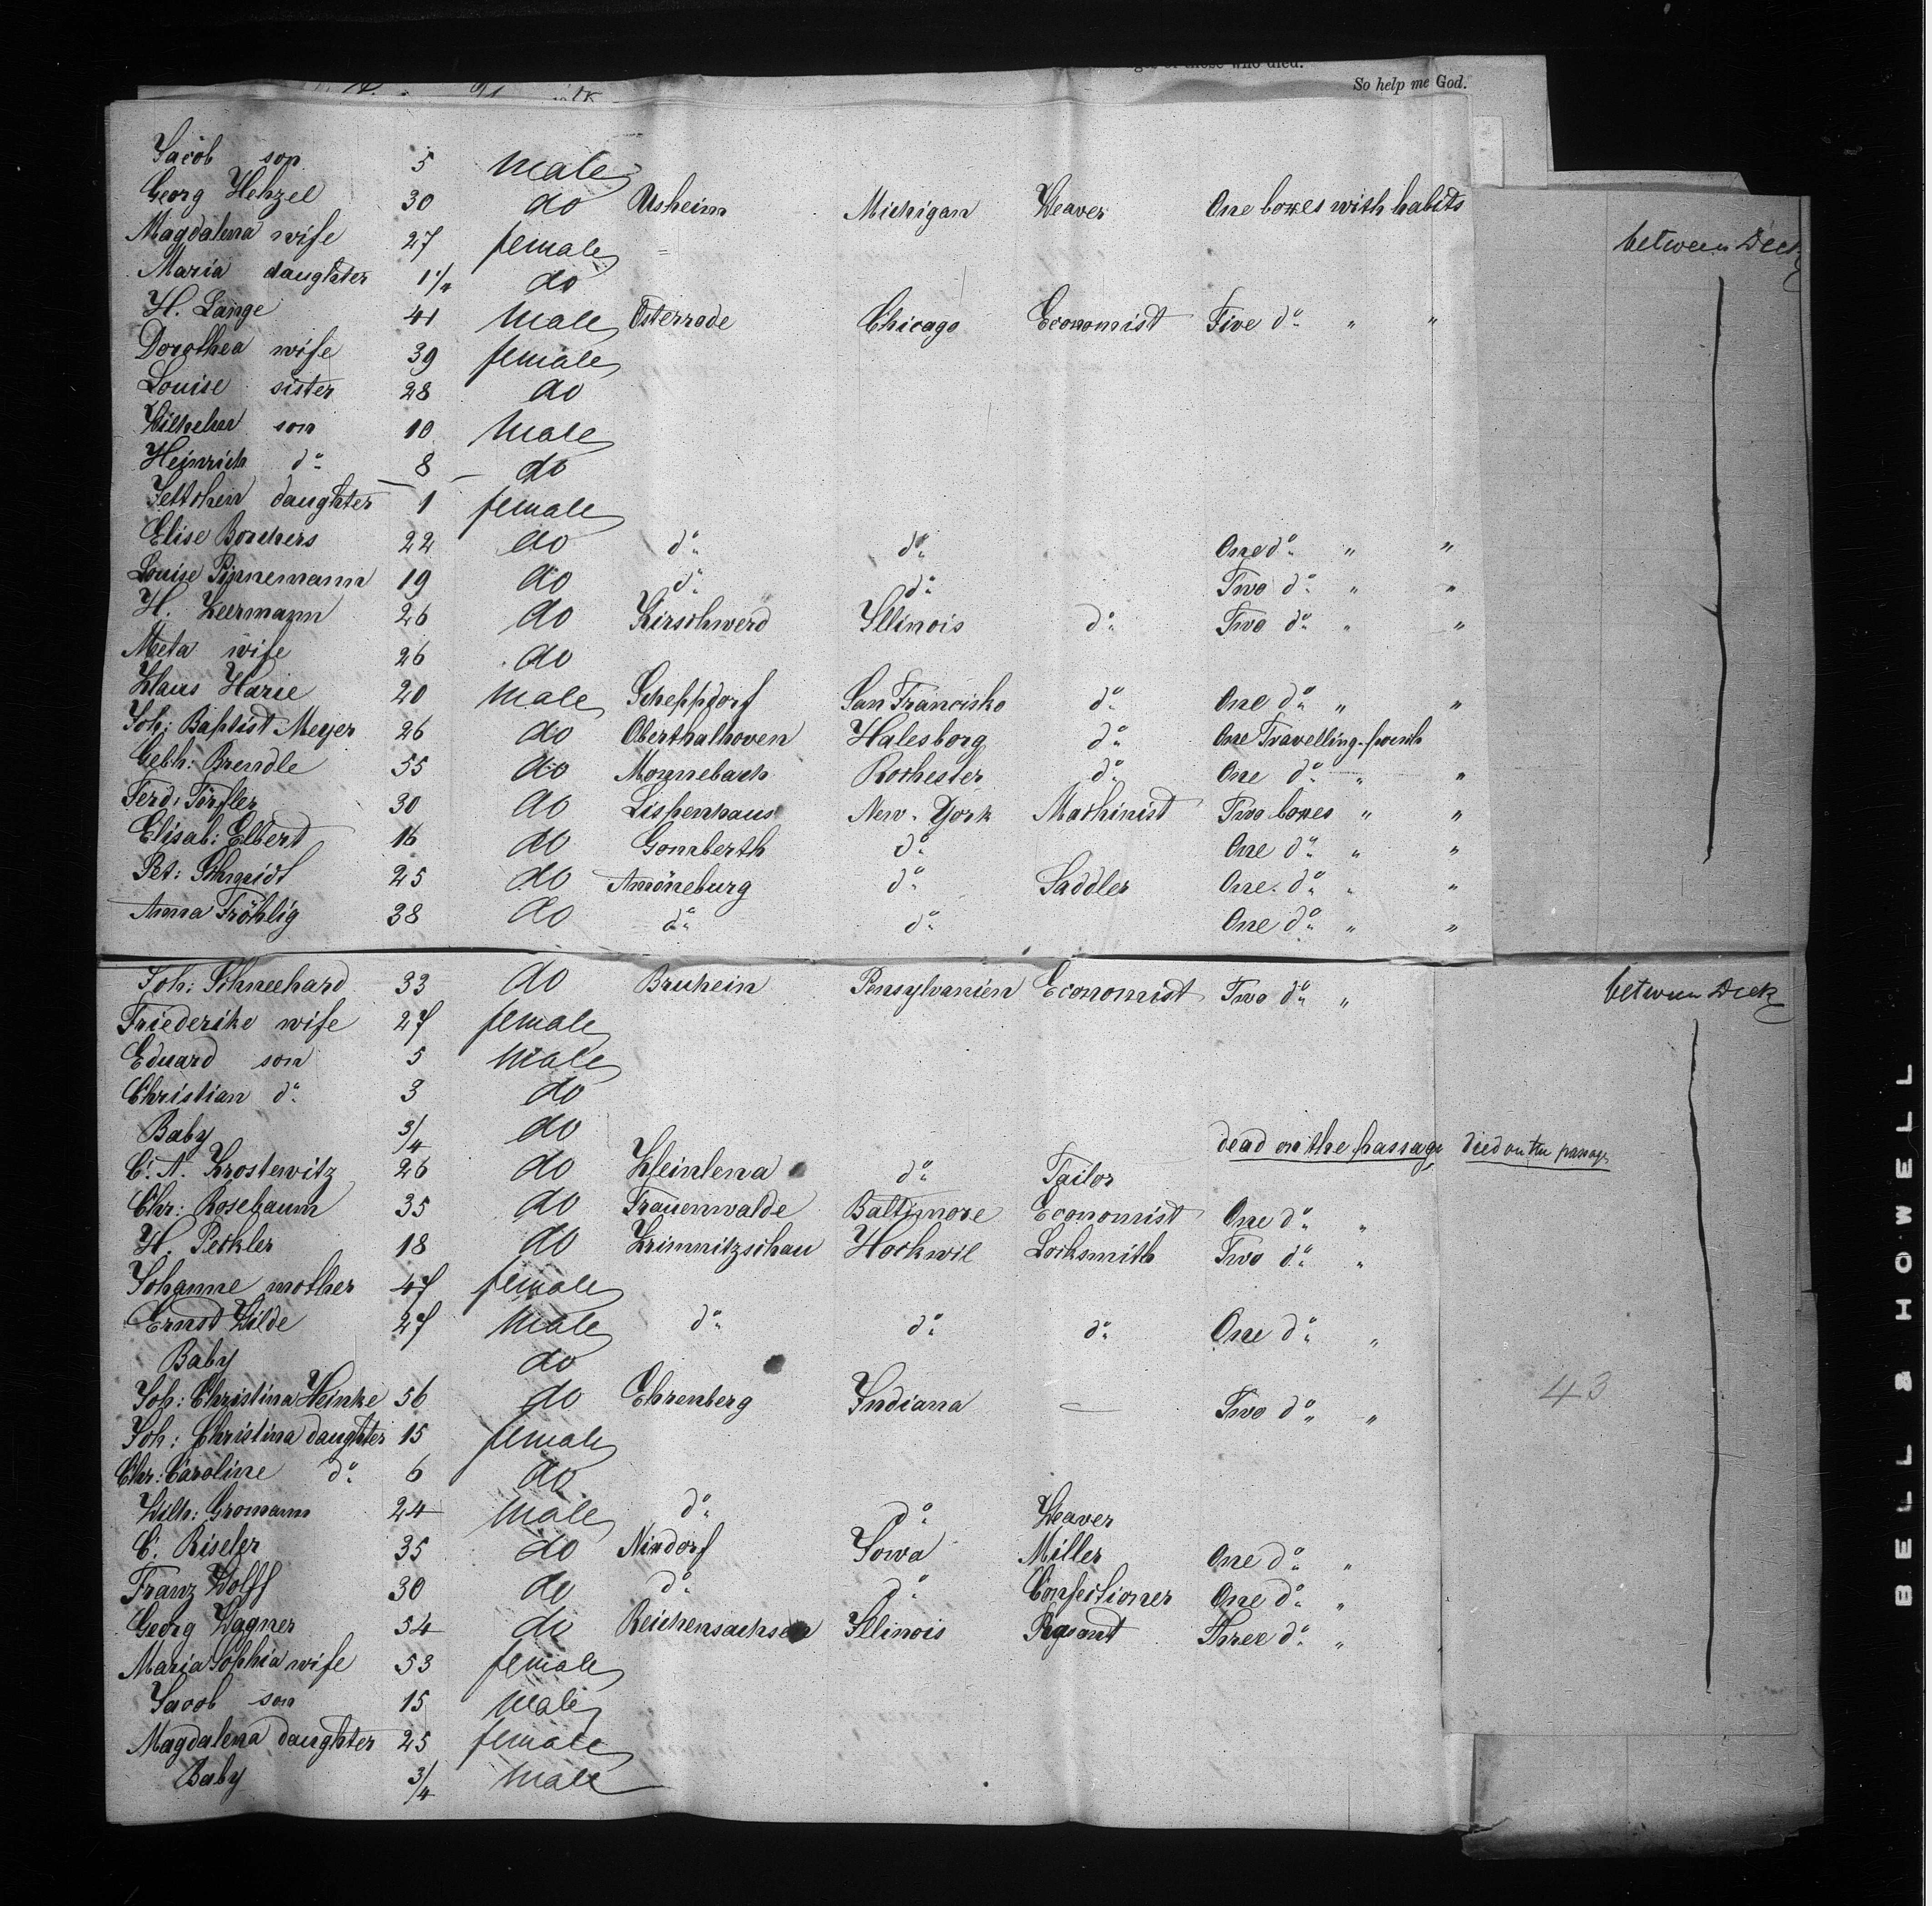 So help me God.
Jacob son 5 male
Georg Hehzel 30 do Usheim Michigan Weaver One boxes with habits
between Deck
Magdalena wife 27 female =
Maria daughter do
H. Lange 41 male Osterrode Chicago Economist Five do " "
Dorothea wife 39 female
Louise sister 28 do
Wilhelm son 10 male
Heinrich do 8 do
Jettchen daughter 1 female
Elise Borchers 22 do do do One do " "
Louise Pinnemann 19 do do do Two do " "
H. Leermann 26 do Kirschwerd Illinois do Two do " "
Meta wife 26 do
Klaus Harie 20 male Scheppdorf San Francisko do One do " "
Joh: Baptist Meyer 26 do Oberthalhoven Halesborg do One Travelling-pouch
Gebh: Brendle 55 do Monnebach Rochester do One do " "
Ferd: Törfler 30 do Lispenhaus New-York Machinist Two boxes " "
Elisab: Elbert 16 do Gomberth do One do " "
Pet: Schmidt 25 do Amöneburg do Saddler One do " "
Anna Fröhlig 38 do do do One do " "
Joh: Schneehard 33 do Bruhein Pensylvanien Economist Two do " between Deck
Friederike wife 27 female
Eduard son 5 male
Christian do 3 do
Baby 3/4 do dead on the passage died on the passage
C. A. Krostewitz 26 do Kleinlena do Tailor
Chr: Rosebaum 35 do Frauenwalde Baltimore Economist One do "
H. Peckler 18 do Krimnitzschau Hockwil Locksmith Two do "
Johanne mother 47 female
Ernst Kilde 27 male do do do One do "
Baby do
Joh: Christina Heinke 56 do Ehrenberg Indiana — Two do "
43
Joh: Christina daughter 15 female
Chr: Caroline do 6 do
Wilh: Gromann 24 male do do Weaver
C. Riseler 35 do Nindorf Iowa Miller One do "
Franz Wolff 30 do do do Confectioner One do "
Georg Wagner 54 do Reichensachsen Illinois Peasant Three do "
Maria Sophia wife 53 female
Jacob son 15 male
Magdalena daughter 25 female
Baby 3/4 male
BELL & HOWELL